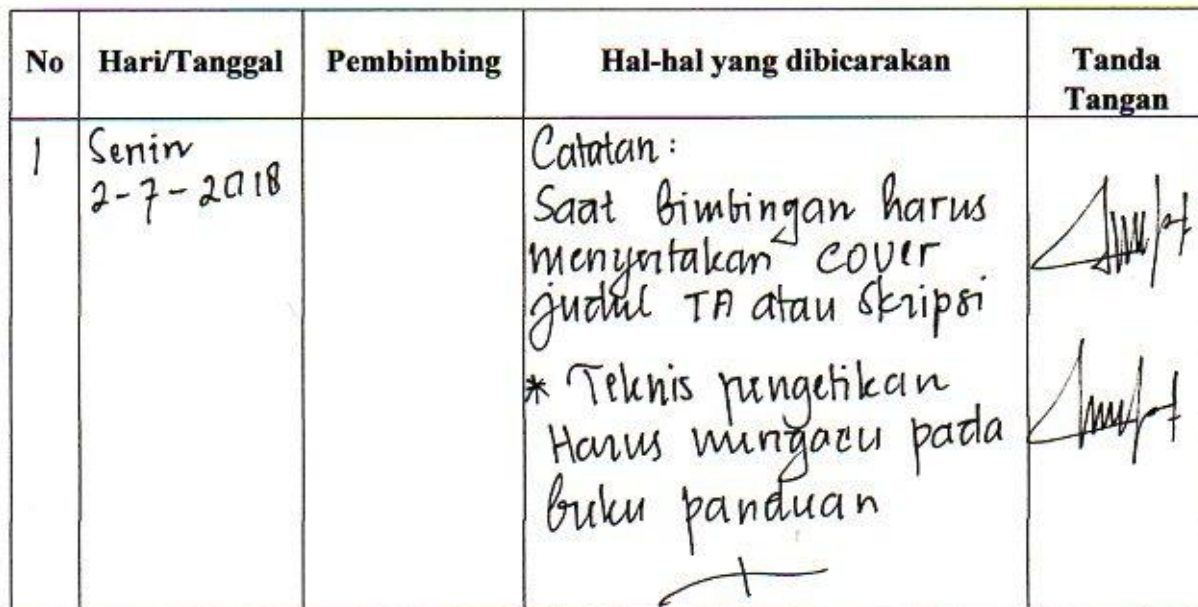 No Hari/Tanggal Pembimbing Hal-hal yang dibicarakan Tanda
Tangan
1 Senin
2-7-2018
Catatan:
Saat bimbingan harus
menyertakan cover
judul TA atau Skripsi
* Teknis pengetikan
Harus mengacu pada
buku panduan